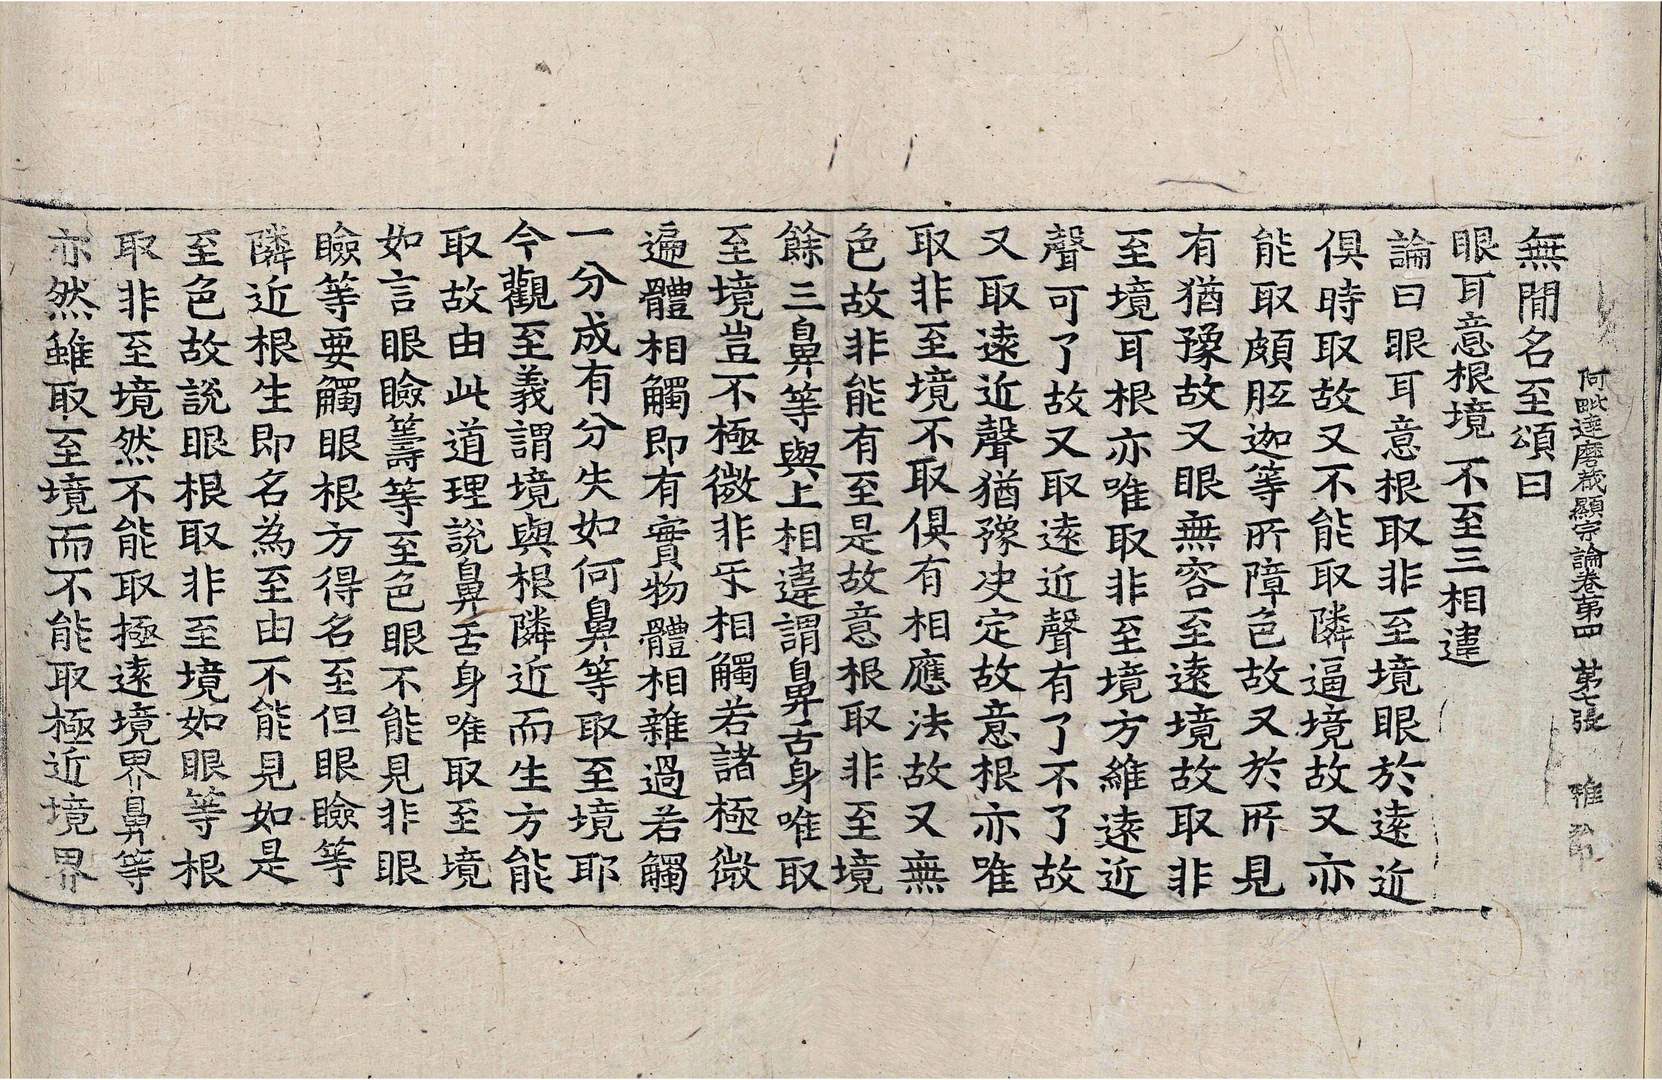 阿毗達磨藏顯宗論卷第四 第七張
無間名至頌曰
眼耳意根境 不至三相違
論曰眼耳意根取非至境眼於遠近
俱時取故又不能取隣逼境故又亦
能取頗胝迦等所障色故又於所見
有猶豫故又眼無容至遠境故取非
至境耳根亦唯取非至境方維遠近
聲可了故又取遠近聲有了不了故
又取遠近聲猶豫决定故意根亦唯
取非至境不取俱有相應法故又無
色故非能有至是故意根取非至境
餘三鼻等與上相違謂鼻舌身唯取
至境豈不極微非㸦相觸若諸極微
遍體相觸即有實物體相雜過若觸
一分成有分失如何鼻等取至境耶
今觀至義謂境與根隣近而生方能
取故由此道理說鼻舌身唯取至境
如言眼瞼籌等至色眼不能見非眼
瞼等要觸眼根方得名至但眼瞼等
隣近根生即名為至由不能見如是
至色故說眼根取非至境如眼等根
取非至境然不能取極遠境界鼻等
亦然雖取至境而不能取極近境界